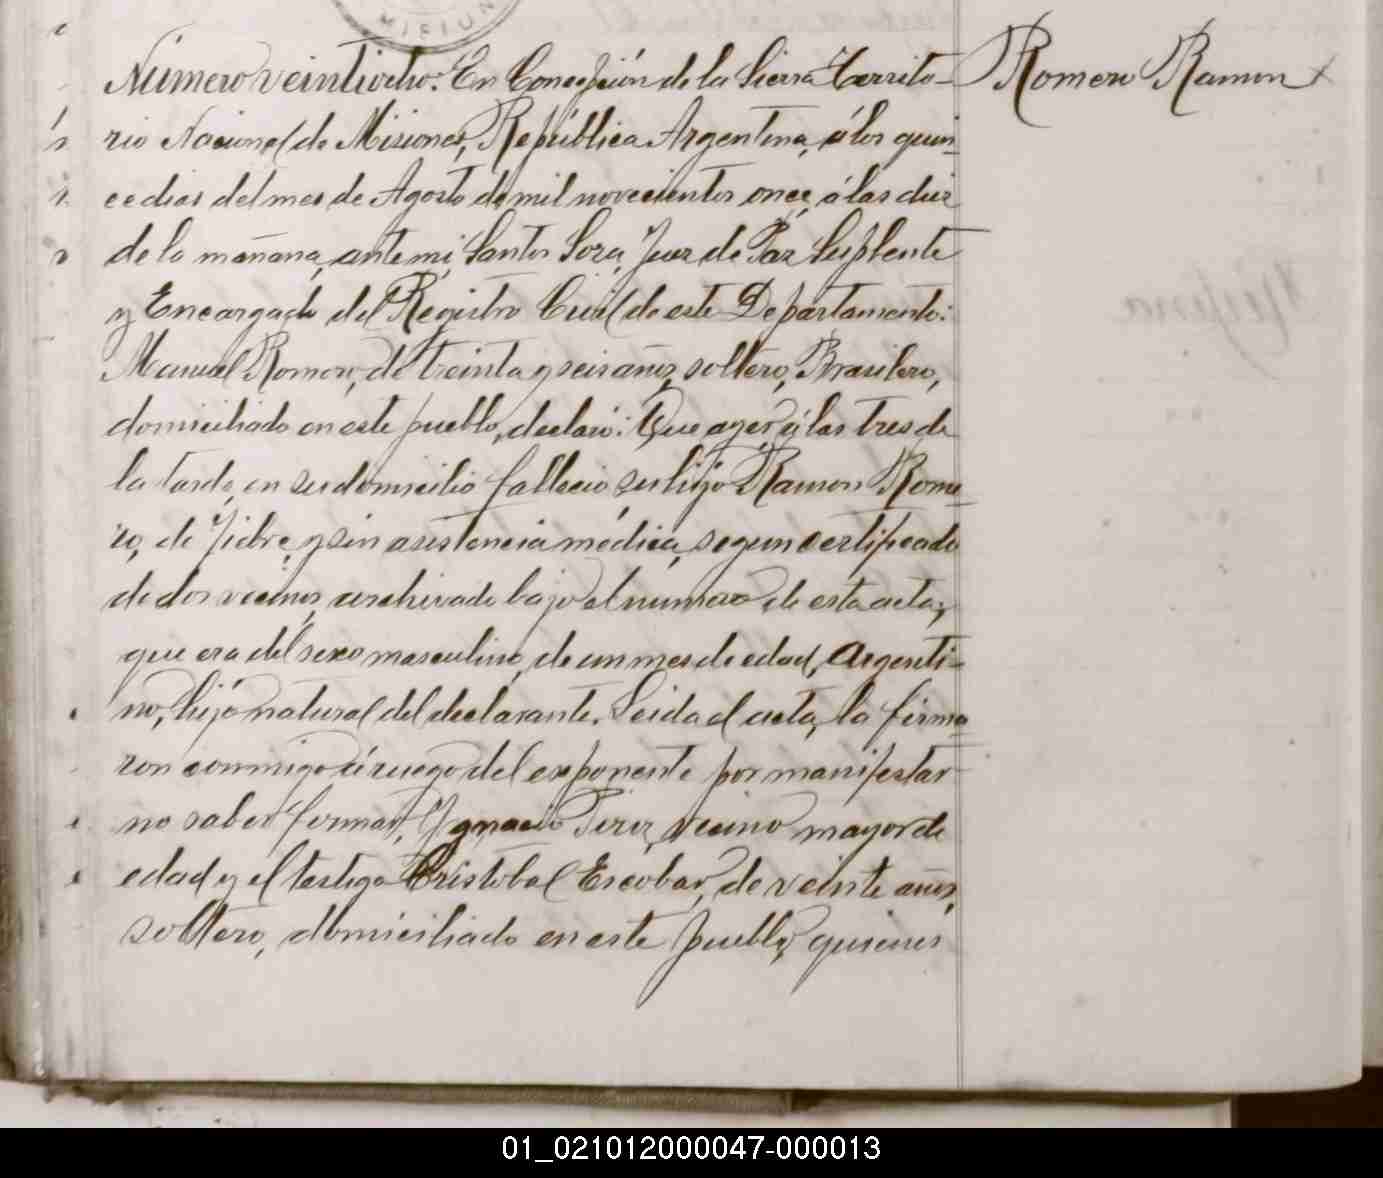 MISIONES
Número veintiocho: En Concepción de la Sierra Territo-
Romero Ramon
rio Nacional de Misiones, República Argentina, á los quin
ce dias del mes de Agosto de mil novecientos once, á las diez
de la mañana, ante mi, Santos Soza, Juez de Paz Suplente
y Encargado del Registro Civil de este Departamento:
Manuel Romero, de treinta y seis años, soltero, Brasilero,
domiciliado en este pueblo, declaró: Que ayer á las tres de
la tarde, en su domicilio falleció su hijo Ramon Rome
ro, de fiebre, y sin asistencia médica, segun certificado
de dos vecinos, archivado bajo el numero de esta acta;
que era del sexo masculino, de un mes de edad, Argenti-
no, hijo natural del declarante. Leida el acta, la firma
ron conmigo á ruego del exponente por manifestar
no saber firmar, Ygnacio Perez, vecino mayor de
edad y el testigo Cristobal Escobar, de veinte años,
soltero, domiciliado en este pueblo, quienes
01_021012000047-000013